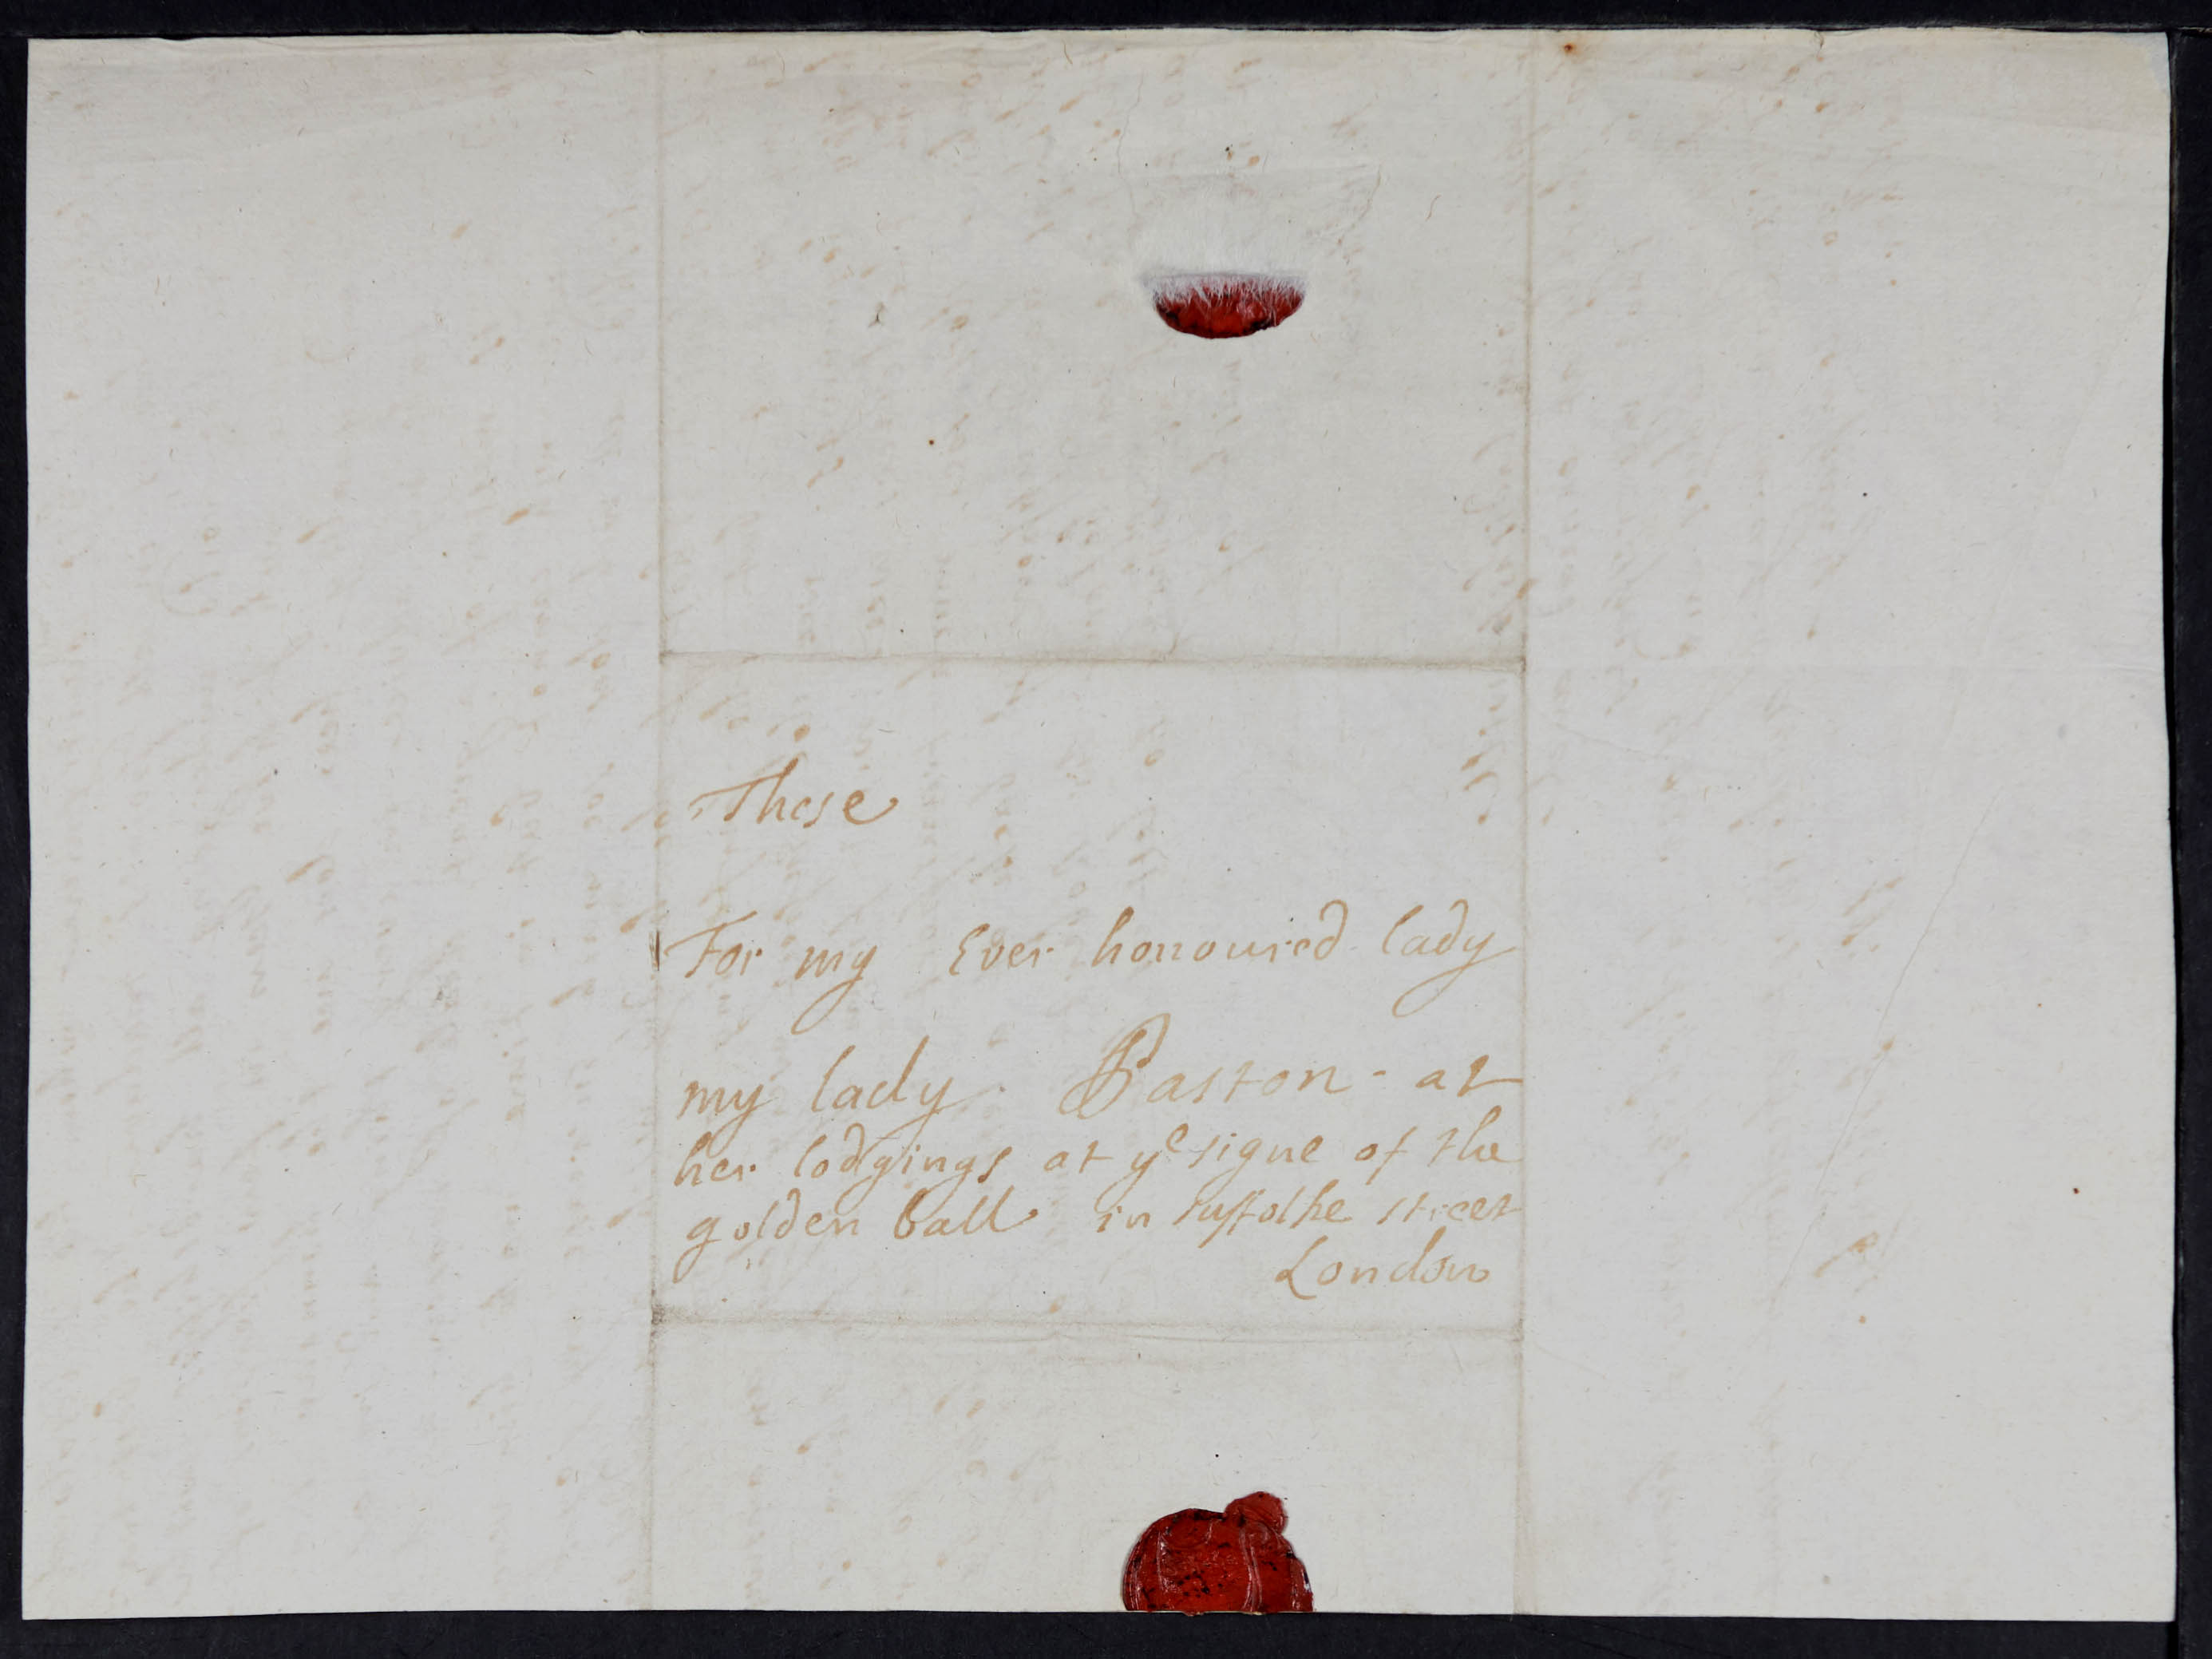 These
For my Ever honoured lady
my lady Paston - at
her lodgings at yᵉ signe of the
golden ball in suffolke street
London